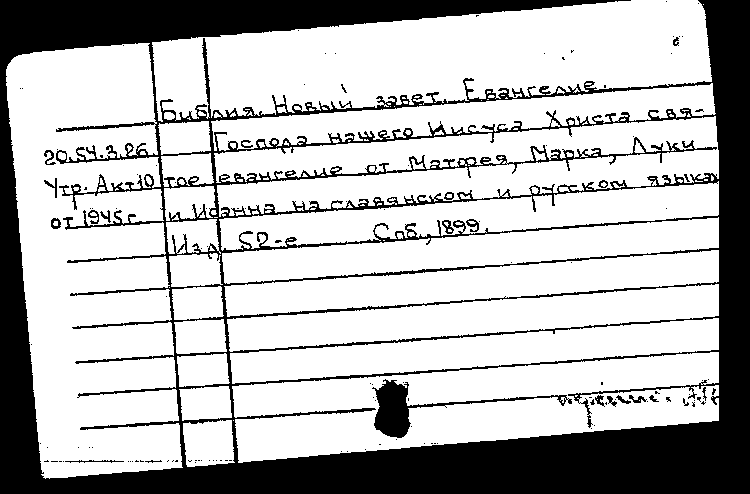 Библия. Новый завет. Евангелие.
20.54.3.26 Господа нашего Иисуса Христа свя-
Утр. Акт 10 тое евангелие от Матфея, Марка, Луки
от 1945 г. и Иоанна на славянском и русском языках
Изд. 52-е Спб., 1899.